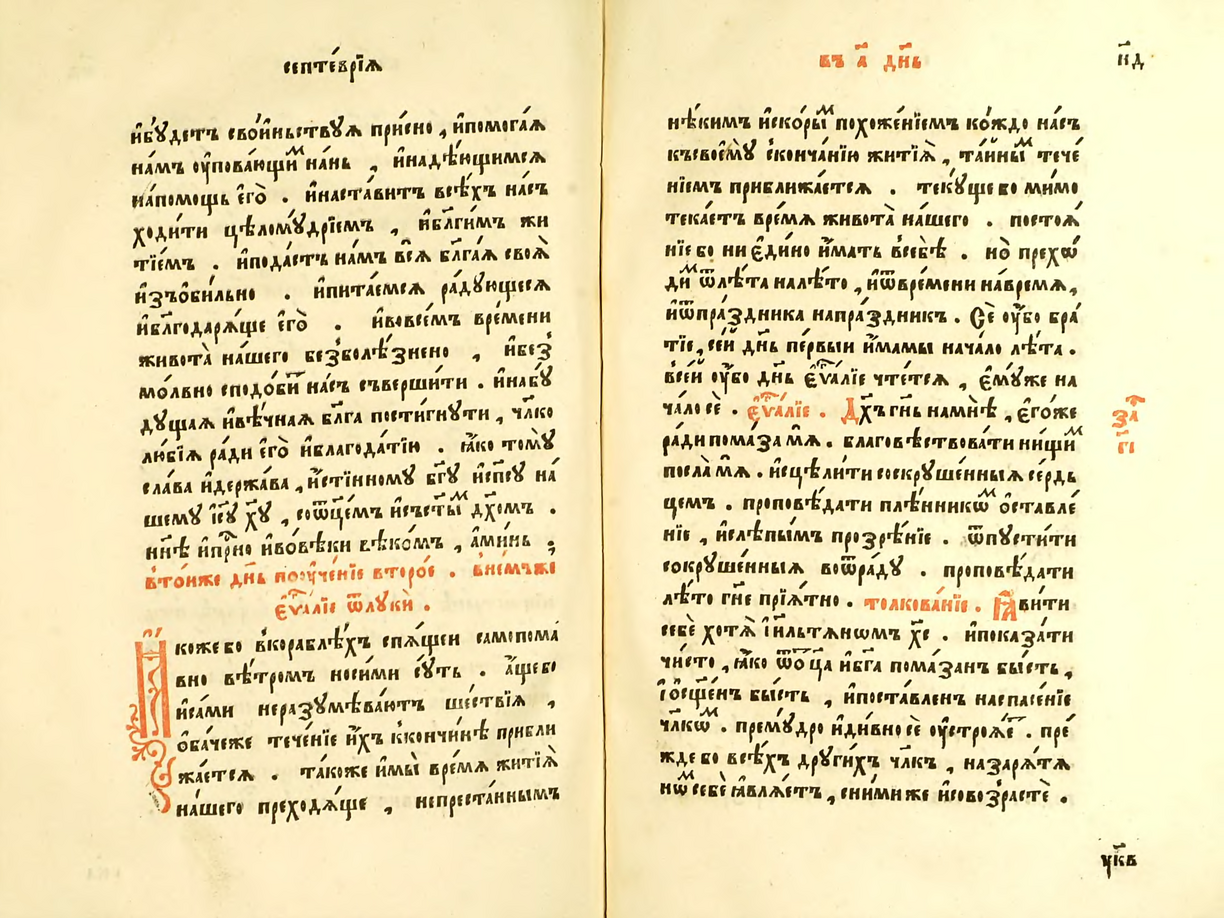 септе́врїѧ
и҆бꙋ́детъ сво́йньствꙋѧ при́сно , и҆помога́ѧ
на́мъ ѹ҆пова́ющиⷨ на́нь , и҆надѣ́ющимсѧ
на́помощь є҆го̀ . и҆наста́витъ всѣ́хъ на́съ
ходи́ти цѣломꙋ́дрїемъ , и҆бл҃ги́мъ жи
тїе́мъ . и҆пода́стъ на́мъ всѧ̀ бл҃га́ѧ своѧ̀
и҆зъѻ҆би́льно . и҆пита́емсѧ ра́дꙋющесѧ
и҆бл҃годарѧ́ще є҆го̀ . и҆вовсе́мъ вре́мени
живота̀ на́шего безболѣ́знено , и҆без̾
мо́лвно сподо́биⷮ на́съ съверши́ти . и҆набꙋ́
дꙋщаѧ и҆вѣ́чнаѧ бл҃га пости́гнꙋти , чл҃ко
лю́бїѧ ра́ди є҆го̀ и҆благода́тїю . ꙗ҆́ко томꙋ̀
сла́ва и҆держа́ва , и҆́стїнномꙋ бг҃ꙋ и҆сп҃сꙋ на́
шемꙋ і҆с҃ꙋ хрⷭ҇тꙋ̀ , соѿц҃е́мъ и҆ст҃ыⷨ дх҃омъ .
нн҃ѣ и҆прⷭ҇но и҆вовѣ́ки вѣко́мъ , а҆ми́нь .
в̾то́йже дн҃ь поꙋче́нїе второ́е . в̾не́мъже
є҆ѵⷢ҇а́лїе ѿлꙋкѝ .
Ꙗ҆́коже бо в̾кораблѣ́хъ спѧ́щеи самопома́
вно вѣ́тромъ носи́ми сꙋ́ть . а҆́ще бо
и҆са́ми неразꙋмѣва́ютъ ше́ствїѧ ,
ѻ҆ба́чеже тече́нїе и҆́хъ к̾кончи́нѣ прибли
жа́етсѧ . та́коже и҆мы̀ вре́мѧ житїѧ̀
на́шего преходѧ́ще , непреста́ннымъ
въ а҃ дн҃ь
н҃д
нѣ́кимъ и҆ско́рыⷨ похожде́нїемъ ко́ждо на́съ
късвоемꙋ̀ сконча́нїю житїѧ̀ , та́йныⷨ тече́
нїемъ приближа́етсѧ . текꙋ́ще бо ми́мо
текае́тъ вре́мѧ живота̀ на́шего . постоѧ́
нїе бо ни є҆ди́но и҆́мать в̾себѣ̀ . но̀ прехо́
диⷨ ѿлѣ́та налѣ́то , и҆ѿвре́мени на́времѧ ,
и҆ѿпра́здника напра́здникъ . Сѐ ѹ҆́бо бра́
тїе , се́й дн҃ь пе́рвыи и҆́мамы нача́ло лѣ́та .
в̾се́й ѹ҆́бо дн҃ь є҆ѵⷢ҇а́лїе чте́тсѧ , є҆мꙋ́же на
ча́ло сѐ . є҆ѵⷢ҇а́лїе . Дх҃ъ гн҃ь на́мнѣ , є҆го́же
ра́ди пома́за мѧ̀ . благовѣствова́ти ни́щиⷨ
посла̀ мѧ̀ . и҆сцѣли́ти сокрꙋше́нныѧ се́рдь
цемъ . проповѣ́дати плѣ́нникоⷨ ѻ҆ставле́
нїе , и҆слѣпы́мъ прозрѣ́нїе . ѿпꙋсти́ти
сокрꙋше́нныѧ воѿра́дꙋ . проповѣ́дати
лѣ́то гн҃е прїѧ́тно . толкова́нїе . Ꙗ҆ви́ти
себѐ хотѧ̀ і҆и҃льтѧ́нѡмъ хр҃с . и҆показа́ти
чи́сто , ꙗ҆́ко ѿѻ҆ц҃а̀ и҆бг҃а пома́занъ бы́сть ,
і҆ѻ҆сщ҃е́нъ бы́сть , и҆поста́вленъ наспасе́нїе
чл҃коⷨ . премꙋ́дро и҆ди́вно сѐ ѹ҆строѧ́еⷮ . пре́
жде бо всѣ́хъ дрꙋги́хъ чл҃къ , назарѧ́тѧ
ноⷨ себѐ ꙗ҆влѧ́етъ , сни́миже и҆совозрастѐ .
заⷱ҇
г҃і
ꙋк҃в